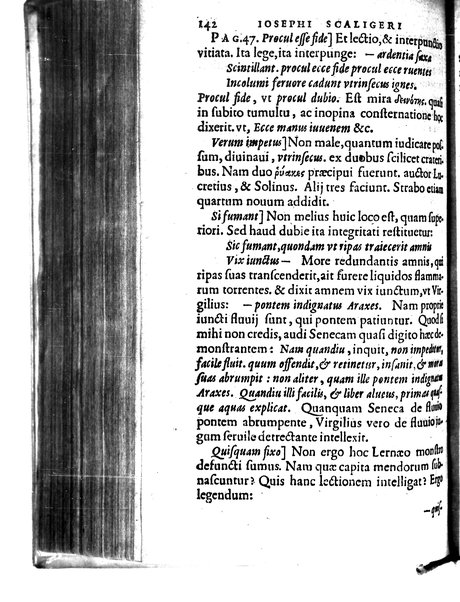 142 IOSEPHI SCALIGERI
PAG.47. Procul esse fide] Et lectio, & interpunctio
vitiata. Ita lege, ita interpunge: — ardentia saxa
Scintillant. procul ecce fide procul ecce ruentes
Incolumi feruore cadunt vtrinsecus ignes.
Procul fide, vt procul dubio. Est mira δεινότης, quasi
in subito tumultu, ac inopina consternatione hoc
dixerit. vt, Ecce manus iuuenem &c.
Verum impetus] Non male, quantum iudicare pos-
sum, diuinaui, vtrinsecus. ex duobus scilicet crateri-
bus. Nam duo ῥύακες præcipui fuerunt. auctor Lu-
cretius, & Solinus. Alij tres faciunt. Strabo etiam
quartum nouum addidit.
Si fumant] Non melius huic loco est, quam supe-
riori. Sed haud dubie ita integritati restituetur:
Sic fumant, quondam vt ripas traiecerit amnis
Vix iunctus — More redundantis amnis, qui
ripas suas transcenderit, ait furere liquidos flamma-
rum torrentes. & dixit amnem vix iunctum, vt Vir-
gilius: — pontem indignatus Araxes. Nam proprie
iuncti fluuij sunt, qui pontem patiuntur. Quod si
mihi non credis, audi Senecam quasi digito hæc de-
monstrantem: Nam quandiu, inquit, non impeditur,
facile fluit. quum offendit, & retinetur, insanit, & mora
suas abrumpit: non aliter, quam ille pontem indignatus
Araxes. Quandiu illi facilis, & liber alueus, primas quas-
que aquas explicat. Quanquam Seneca de fluuio
pontem abrumpente, Virgilius vero de fluuio iu-
gum seruile detrectante intellexit.
Quisquam fixo] Non ergo hoc Lernæo monstro
defuncti sumus. Nam quæ capita mendorum sub-
nascuntur? Quis hanc lectionem intelligat? Ergo
legendum:
— quis-